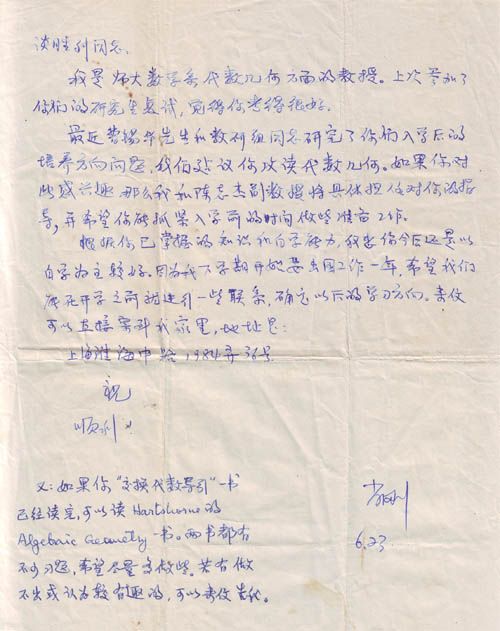 谈胜利同志:
我是师大数学系代数几何方面的教授。上次参加了
你们的研究生复试,觉得你考得很好。
最近曹锡华先生和教研组同志研究了你们入学后的
培养方向问题,我们建议你攻读代数几何。如果你对
此感兴趣那么我和陈志杰副教授将具体担任对你的指
导,并希望你能抓紧入学前的时间做些准备工作。
根据你已掌握的知识和自学能力,我觉得你今后还是以
自学为主较好。因为我下学期开始要出国工作一年,希望我们
能在开学之前就进行一些联系,确定以后的学习方向。来信
可以直接寄到我家里,地址是:
上海淮海中路1984弄36号
祝
顺利!
肖刚
6.23
又:如果你“交换代数导引”一书
已经读完,可以读Hartshorne的
Algebraic Geometry一书。两书都有
不少习题,希望尽量多做些。若有做
不出或认为较有趣的,可以来信告我。